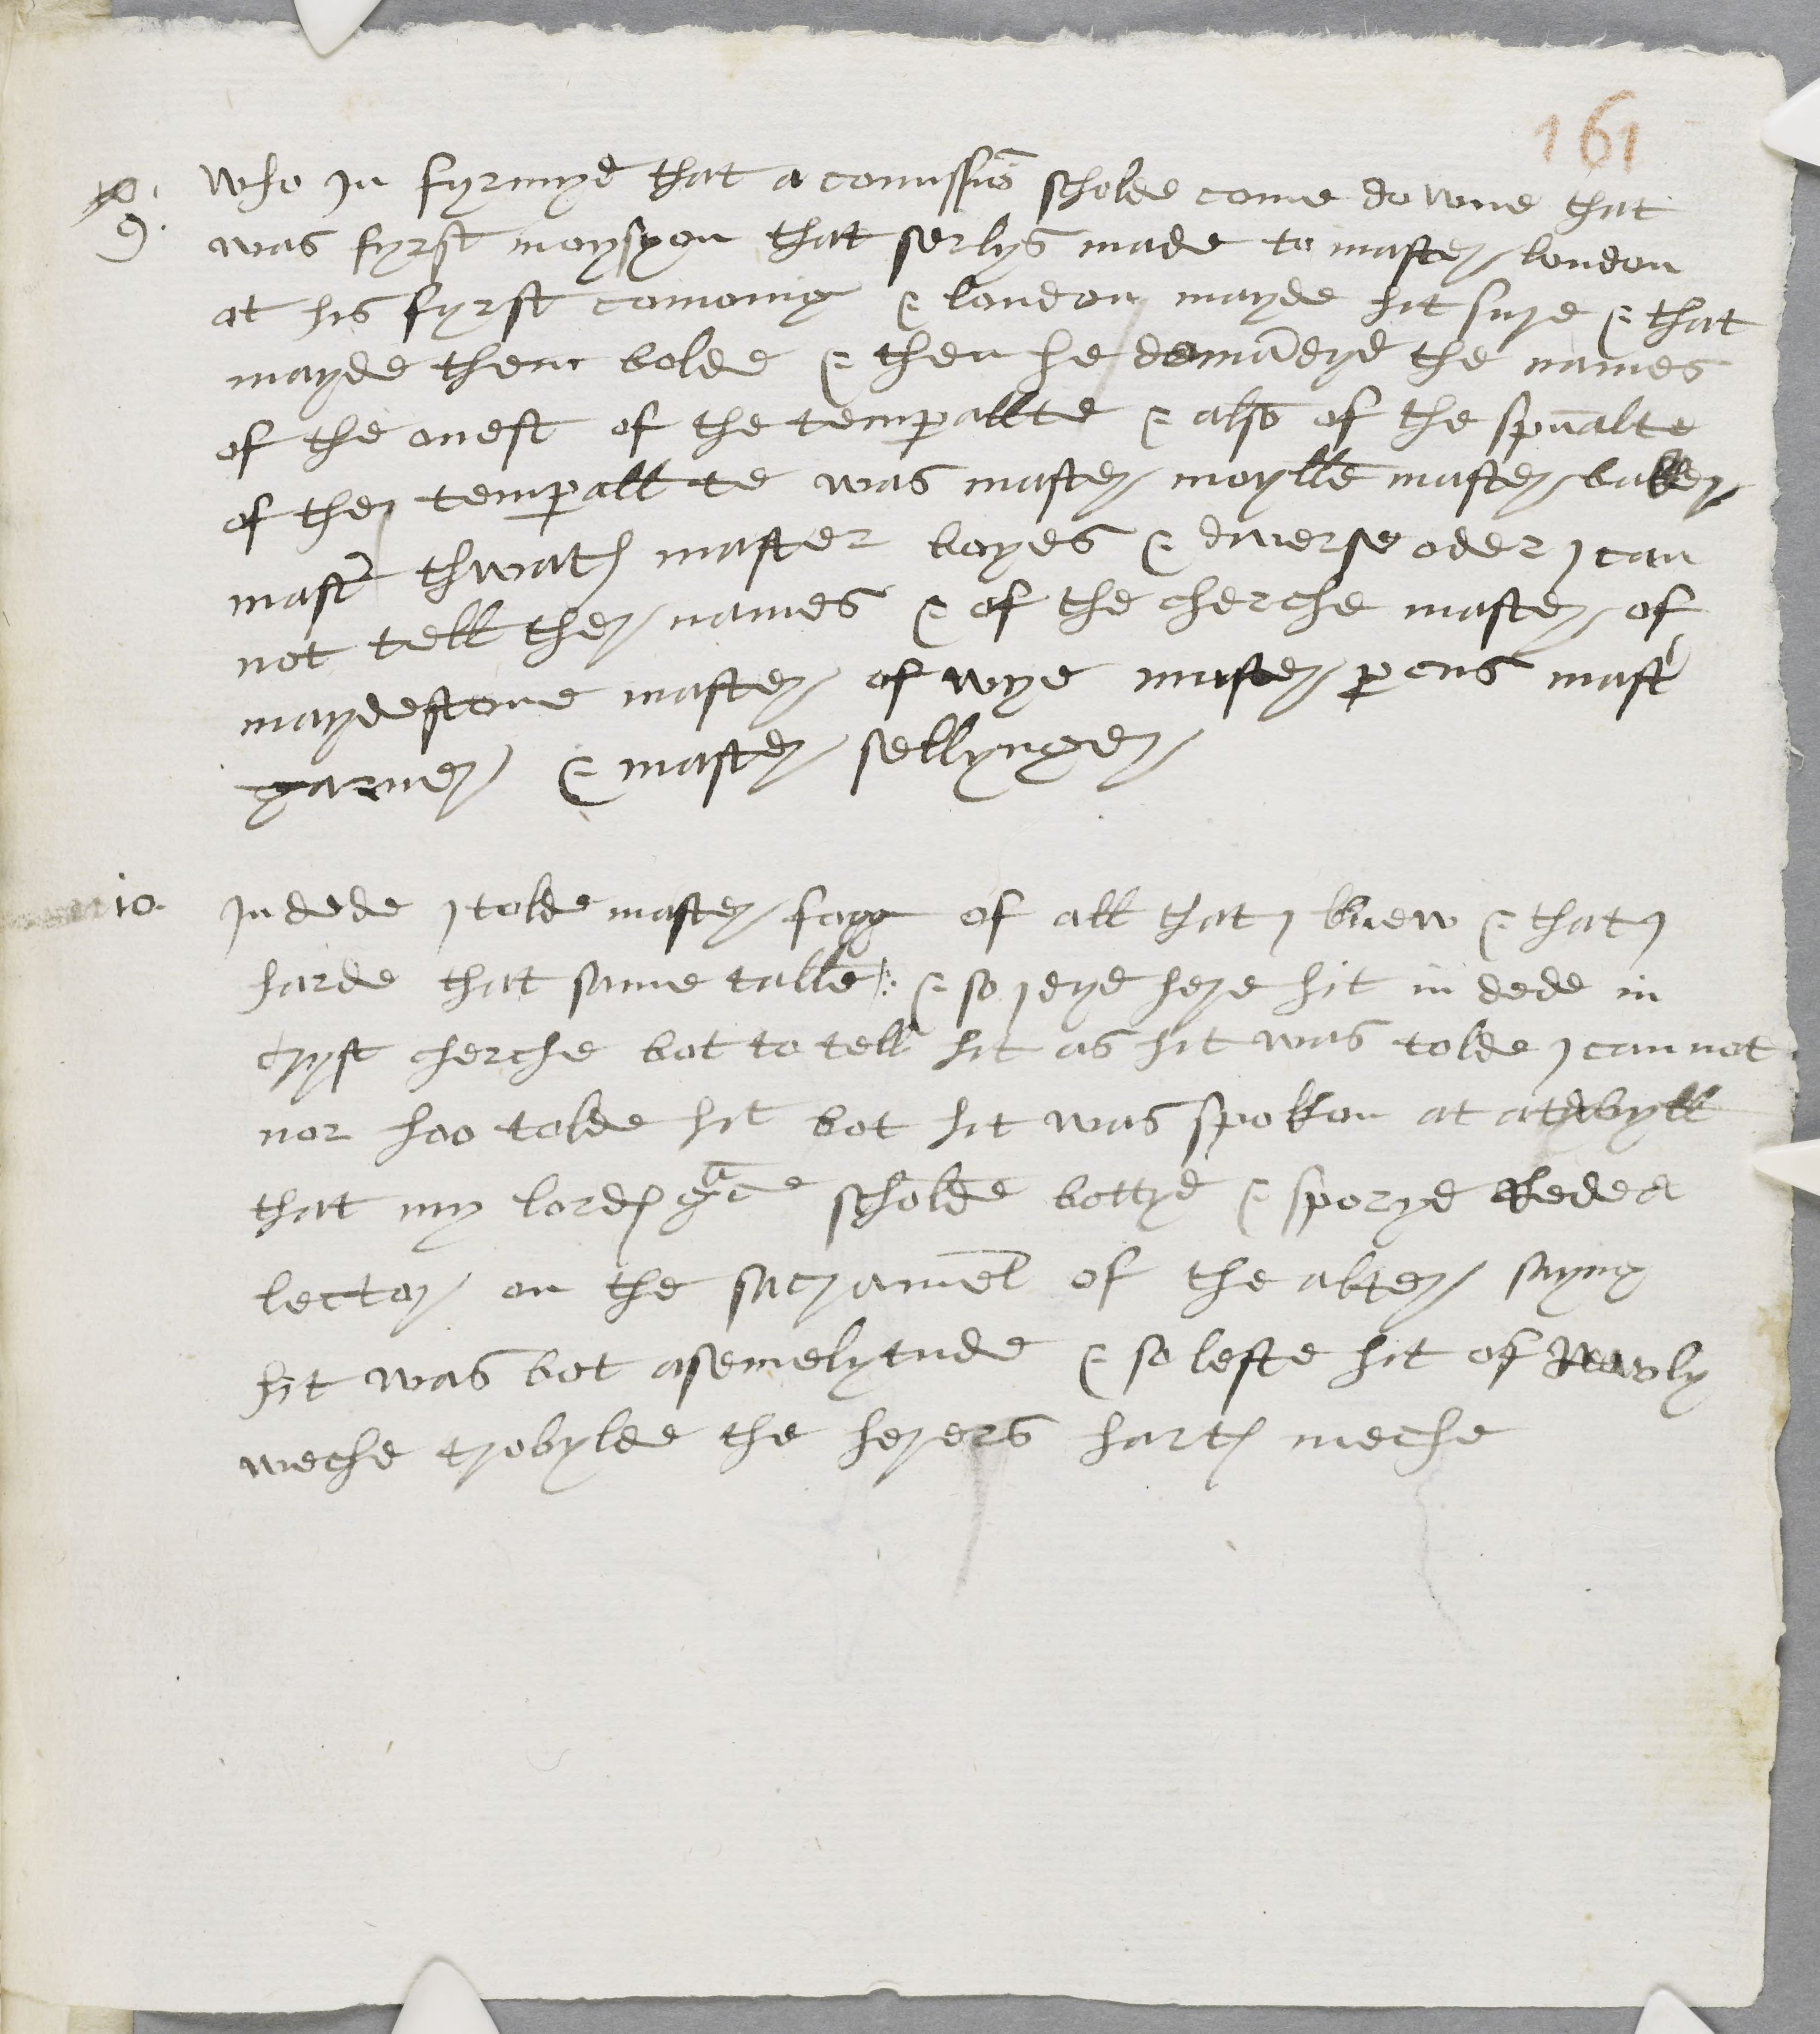 161
9. who in fyrmyd that a comissiō scholde come downe that
was fyrst moysyon that serlys made to master london
at his fyrst comoing & london mayde hit sure & that
mayde them bolde & then he demādyd the names
of the onest of the temporallte & also of the spūalte
of the temporallte was master moylle master baker
mastr thwats master boyes & diuerse oder i can
not tell ther names & of the cherche master of
maydestone master of wye master pons mastr
garner & master sellynger
10 Indede i tolde master fogg of all that i knew & that i
harde that same talle & so i dyd here hit in dede in
cryst cherche bot to tell hit as hit was tolde i can not
nor hoo tolde hit bot hit was spokkon at a tabyll
that my lords grace scholde bottyd & sporyd Rede a
lector on the sacrament of the alter saying
hit was bot a semelytude & so lefte hit of Rawly
weche trobylde the herers harts meche